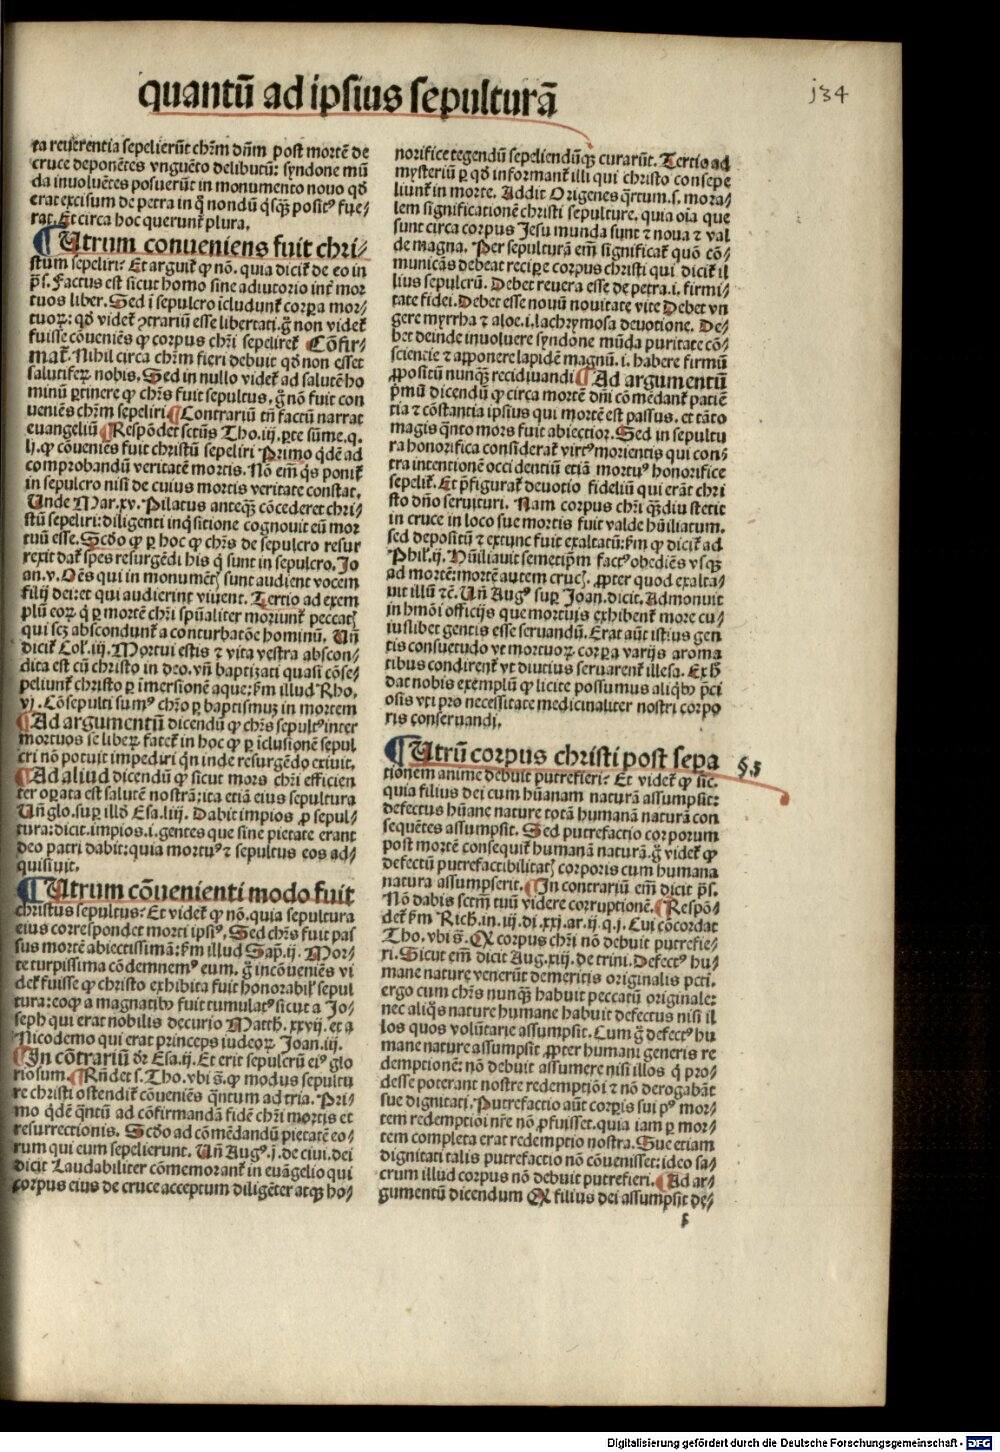 quantū ad ipsius sepulturā
j34
ta reuerentia sepelierūt chr̄m dn̄m post mortē de
cruce deponētes vnguēto delibutū: syndone mū
da inuoluētes posuerūt in monumento nouo qd̄
erat excisum de petra in q̄ nondū q̄sq̄ȝ positꝰ fue⸗
rat. Et circa hoc querunt̄ plura.
¶ Utrum conueniens fuit chri⸗
stum sepeliri? Et arguit̄ ꝙ nō. quia dicit̄ de eo in
ps̄. Factus est sicut homo sine adiutorio int̄ mor
tuos liber. Sed ī sepulcro īcludunt̄ corꝑa mor⸗
tuoꝝ: qd̄ videt̄ ꝯtrariū esse libertati. ḡ non videt̄
fuisse cōueniēs ꝙ corpus chr̄i sepeliret̄ ¶ Cōfir⸗
mat̄. Nihil circa chr̄m fieri debuit qd̄ non esset
salutifeꝝ nobis. Sed in nullo videt̄ ad salutē ho
minū ꝑtinere ꝙ chr̄s fuit sepultus. ḡ nō fuit con
ueniēs chr̄m sepeliri ¶ Contrariū tn̄ factū narrat
euangeliū ¶ Respōdet sctūs Tho. iij. ꝑte sūme. q.
lj. ꝙ cōueniēs fuit christū sepeliri Primo qdē ad
comprobandū veritatē mortis. Nō em̄ q̄s ponit̄
in sepulcro nisi de cuius mortis veritate constat.
Unde Mar. xv. Pilatus anteq̄ȝ cōcederet chri⸗
stū sepeliri: diligenti inq̄sitione cognouit eū mor
tuū esse. Scd̄o ꝙ ꝑ hoc ꝙ chr̄s de sepulcro resur
rexit dat̄ spes resurgēdi his q̄ sunt in sepulcro. Jo
an. v. Oēs qui in monumēt̄ sunt audient vocem
filij dei: et qui audierint viuent. Tertio ad exem
plū eoꝝ q̄ ꝑ mortē chr̄i spūaliter moriunt̄ peccat̄
qui scȝ abscondunt̄ a conturbatōe hominū. Un̄
dicit̄ Col̄. iij. Mortui estis ⁊ vita vestra abscon⸗
dita est cū christo in deo. vn̄ baptizati quasi cōse⸗
peliunt̄ christo ꝑ īmersionē aque: ẜm illud Rho.
vj. Cōsepulti sumꝰ chr̄o ꝑ baptismuȝ in mortem
¶ Ad argumentū dicendū ꝙ chr̄s sepultꝰ inter
mortuos se libeꝝ fatet̄ in hoc ꝙ ꝑ īclusionē sepul
cri nō potuit impediri qn̄ inde resurgēdo exiuit.
¶ Ad aliud dicendū ꝙ sicut mors chr̄i efficien
ter oꝑata est salutē nostrā: ita etiā eius sepultura
Un̄ glo. suꝑ illd̄ Esa. liij. Dabit impios ꝓ sepul⸗
tura: dicit. impios. i. gentes que sine pietate erant
deo patri dabit: quia mortuꝰ ⁊ sepultus eos ad⸗
quisiuit.
¶ Utrum cōuenienti modo fuit
christus sepultus? Et videt̄ ꝙ nō. quia sepultura
eius correspondet morti ipsiꝰ. Sed chr̄s fuit pas
sus mortē abiectissimā: ẜm illud Sap̄. ij. Mor⸗
te turpissima cōdemnemꝰ eum. ḡ incōueniēs vi
det̄ fuisse ꝙ christo exhibita fuit honorabil̄ sepul
tura: eoꝙ a magnatibꝰ fuit tumulatꝰ sicut a Jo⸗
seph qui erat nobilis decurio Matth. xxvij. et a
Nicodemo qui erat princeps iudeoꝝ Joan. iij.
¶ In cōtrariū dr̄ Esa. ij. Et erit sepulcrū eiꝰ glo
riosum. ¶ Rn̄det s. Tho. vbi s̄. ꝙ modus sepultu
re christi ostendit̄ cōueniēs q̄ntum ad tria. Pri⸗
mo qdē q̄ntū ad cōfirmandā fidē chr̄i mortis et
resurrectionis. Scd̄o ad cōmēdandū pietatē eo⸗
rum qui eum sepelierunt. Un̄ Augꝰ. j. de ciui. dei
dicit Laudabiliter cōmemorant̄ in euāgelio qui
corpus eius de cruce acceptum diligēter atq̄ȝ ho⸗
norifice tegendū sepeliendūq̄ȝ curarūt. Tertio ad
mysteriū ꝑ qd̄ informant̄ illi qui christo consepe
liunt̄ in morte. Addit Origenes q̄rtum. s. mora⸗
lem significationē christi sepulture. quia oīa que
sunt circa corpus Jesu munda sunt ⁊ noua ⁊ val
de magna. Per sepulturā em̄ significat̄ quō cō⸗
municās debeat reciꝑe corpus christi qui dicit̄ il
lius sepulcrū. Debet reuera esse de petra. i. firmi⸗
tate fidei. Debet esse nouū nouitate vite Debet vn
gere myrrha ⁊ aloe. i. lachrymosa deuotione. De⸗
bet deinde inuoluere syndone mūda puritate cō⸗
sciencie ⁊ apponere lapidē magnū. i. habere firmū
ꝓpositū nunq̄ȝ recidiuandi ¶ Ad argumentū
pͥmū dicendū ꝙ circa mortē dn̄i cōmēdant̄ patiē
tia ⁊ cōstantia ipsius qui mortē est passus. et tāto
magis q̄nto mors fuit abiectior. Sed in sepultu
ra honorifica considerat̄ virtꝰ morientis qui con⸗
tra intentionē occidentiū etiā mortuꝰ honorifice
sepelit̄. Et p̄figurat̄ deuotio fideliū qui erāt chri
sto dn̄o seruituri. Nam corpus chr̄i q̄ȝdiu stetit
in cruce in loco sue mortis fuit valde hūiliatum.
sed depositū ⁊ extunc fuit exaltatū: ẜm ꝙ dicit̄ ad
Phil̄. ij. Hūiliauit semetip̄m factꝰ obediēs vsq̄ȝ
ad mortē: mortē autem cruc̄. ꝓpter quod exalta⸗
uit illū ⁊c̄. Un̄ Augꝰ suꝑ Joan. dicit. Admonuit
in hmōi officijs que mortuis exhibent̄ more cu⸗
iuslibet gentis esse seruandū. Erat aūt istius gen
tis consuetudo vt mortuoꝝ corꝑa varijs aroma
tibus condirent̄ vt diutius seruarent̄ illesa. Exh̄
dat nobis exemplū ꝙ licite possumus aliqb̄ p̄ci
osis vti pro necessitate medicinaliter nostri corpo
ris conseruandi.
¶ Utrū corpus christi post sepa
§.3
rationem anime debuit putrefieri? Et videt̄ ꝙ sic.
quia filius dei cum hūanam naturā assumpsit:
defectus hūane nature totā humanā naturā con
sequētes assumpsit. Sed putrefactio corporum
post mortē consequit̄ humanā naturā. ḡ videt̄ ꝙ
defectū putrefactibilitat̄ corporis cum humana
natura assumpserit. ¶ In contrariū em̄ dicit ps̄.
Nō dabis sctm̄ tuū videre corruptionē. ¶ Respō⸗
det̄ ẜm Rich̄. in. iij. di. xxi. ar. ij. q. j. Cui cōcordat
Tho. vbi s̄. Ꝙ corpus chr̄i nō debuit putrefie⸗
ri. Sicut em̄ dicit Aug. xiij. de trini. Defectꝰ hu⸗
mane nature venerūt demeritis originalis pcti.
ergo cum chr̄s nunq̄ȝ habuit peccatū originale:
nec aliq̄s nature humane habuit defectus nisi il
los quos volūtarie assumpsit. Cum ḡ defectꝰ hu
mane nature assumpsit ꝓpter humani generis re
demptionē: nō debuit assumere nisi illos q̄ pro⸗
desse poterant nostre redemptiōi ⁊ nō derogabāt
sue dignitati. Putrefactio aūt corꝑis sui pꝰ mor⸗
tem redemptioī nr̄e nō ꝓfuisset. quia iam ꝑ mor⸗
tem completa erat redemptio nostra. Sue etiam
dignitati talis putrefactio nō cōuenisset: ideo sa⸗
crum illud corpus nō debuit putrefieri. ¶ Ad ar⸗
gumentū dicendum Ꝙ filius dei assumpsit de⸗
s
Digitalisierung gefördert durch die Deutsche Forschungsgemeinschaft - DFG